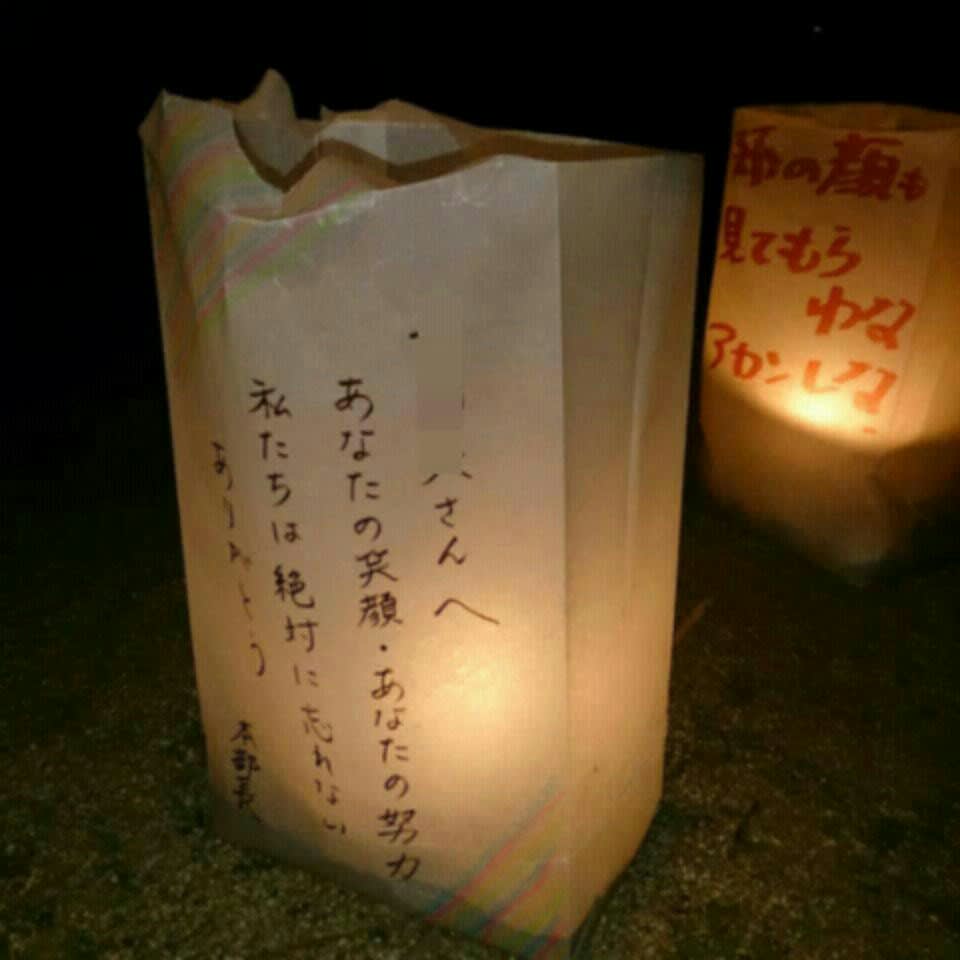 さんへ
あなたの笑顔・あなたの努力
私たちは絶対に忘れない
ありがとう
本部長
の顔も
見てもら
わな
アカンしな